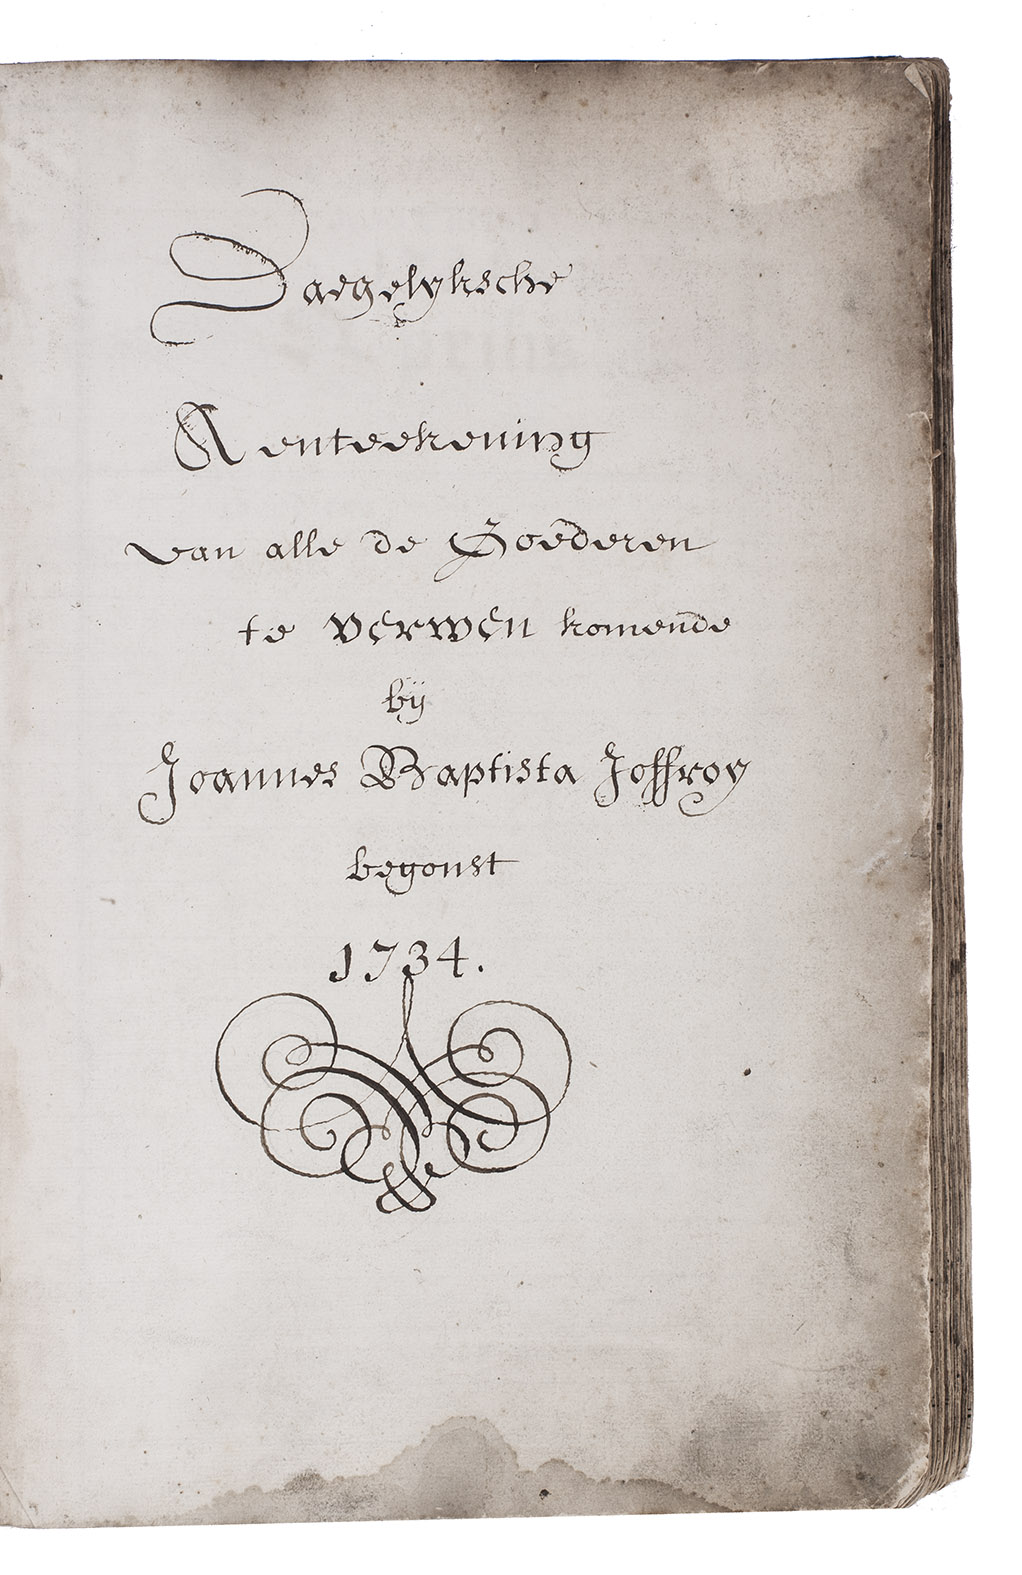 Daegelyksche
Aenteekening
van alle de Goederen
te verwen komende
bÿ
Joannes Baptista Joffroy
begonst
1734.